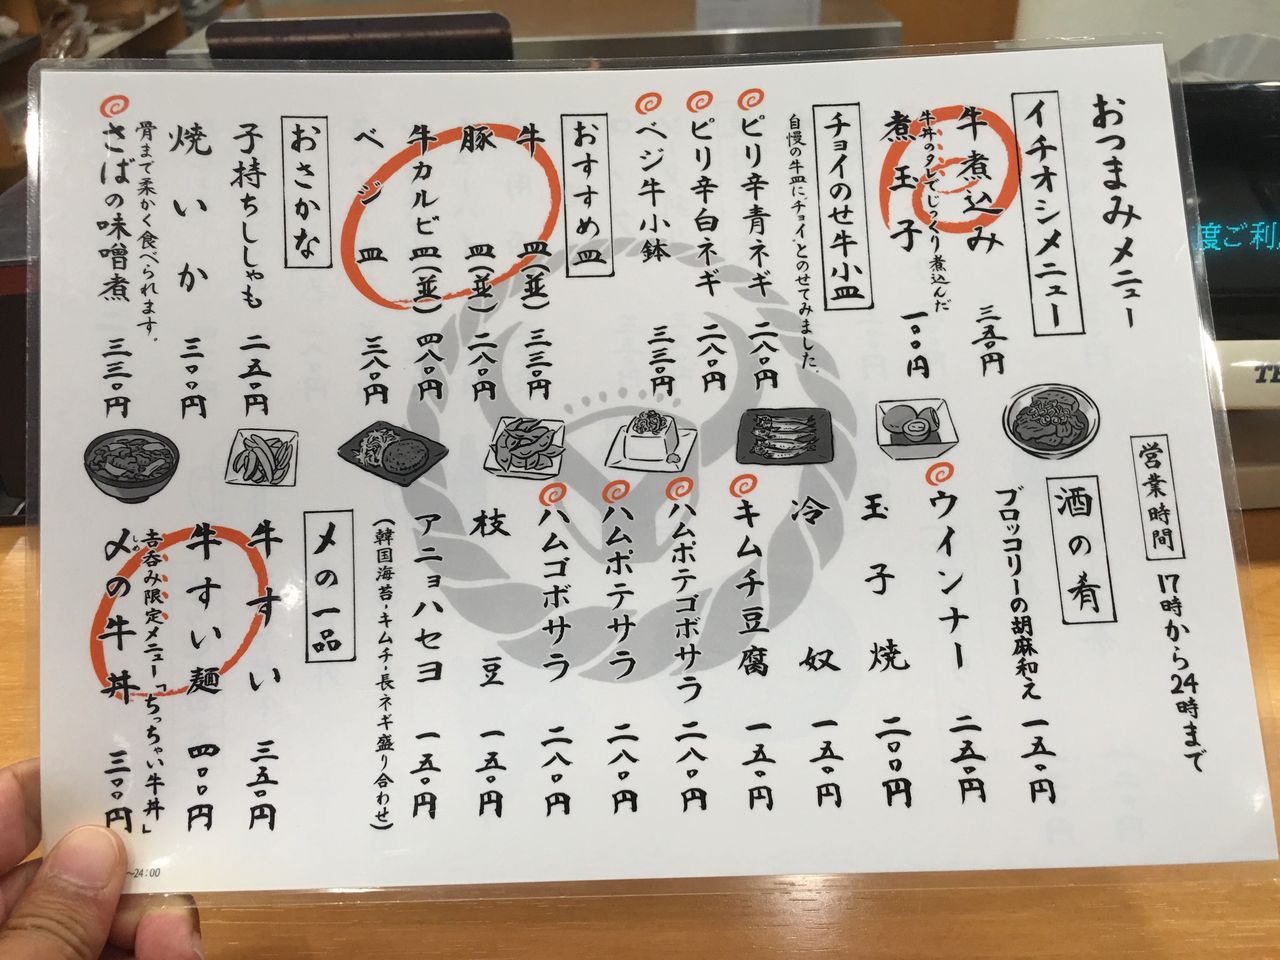 おつまみメニュー
イチオシメニュー
牛煮込み 三五〇円
牛丼のタレでじっくり煮込んだ
煮玉子 一〇〇円
チョイのせ牛小皿
自慢の牛皿に、チョイ、とのせてみました。
ピリ辛青ネギ 二八〇円
ピリ辛白ネギ 二八〇円
ベジ牛小鉢 三三〇円
おすすめ皿
牛皿(並) 三三〇円
豚皿(並) 二八〇円
牛カルビ皿(並) 四八〇円
ベジ皿 三八〇円
おさかな
子持ちししゃも 二五〇円
焼いか 三〇〇円
骨まで柔かく食べられます。
さばの味噌煮 三三〇円
営業時間 17時から24時まで
酒の肴
ブロッコリーの胡麻和え 一五〇円
ウインナー 二五〇円
玉子焼 二〇〇円
冷奴 一五〇円
キムチ豆腐 一五〇円
ハムポテゴボサラ 二八〇円
ハムポテサラ 二八〇円
ハムゴボサラ 二八〇円
枝豆 一五〇円
アニョハセヨ 一五〇円
(韓国海苔・キムチ・長ネギ盛り合わせ)
〆の一品
牛すい 三五〇円
牛すい麺 四〇〇円
吉呑み限定メニュー「ちっちゃい牛丼」
〆の牛丼 三〇〇円
しめ
～24:00
度ご利